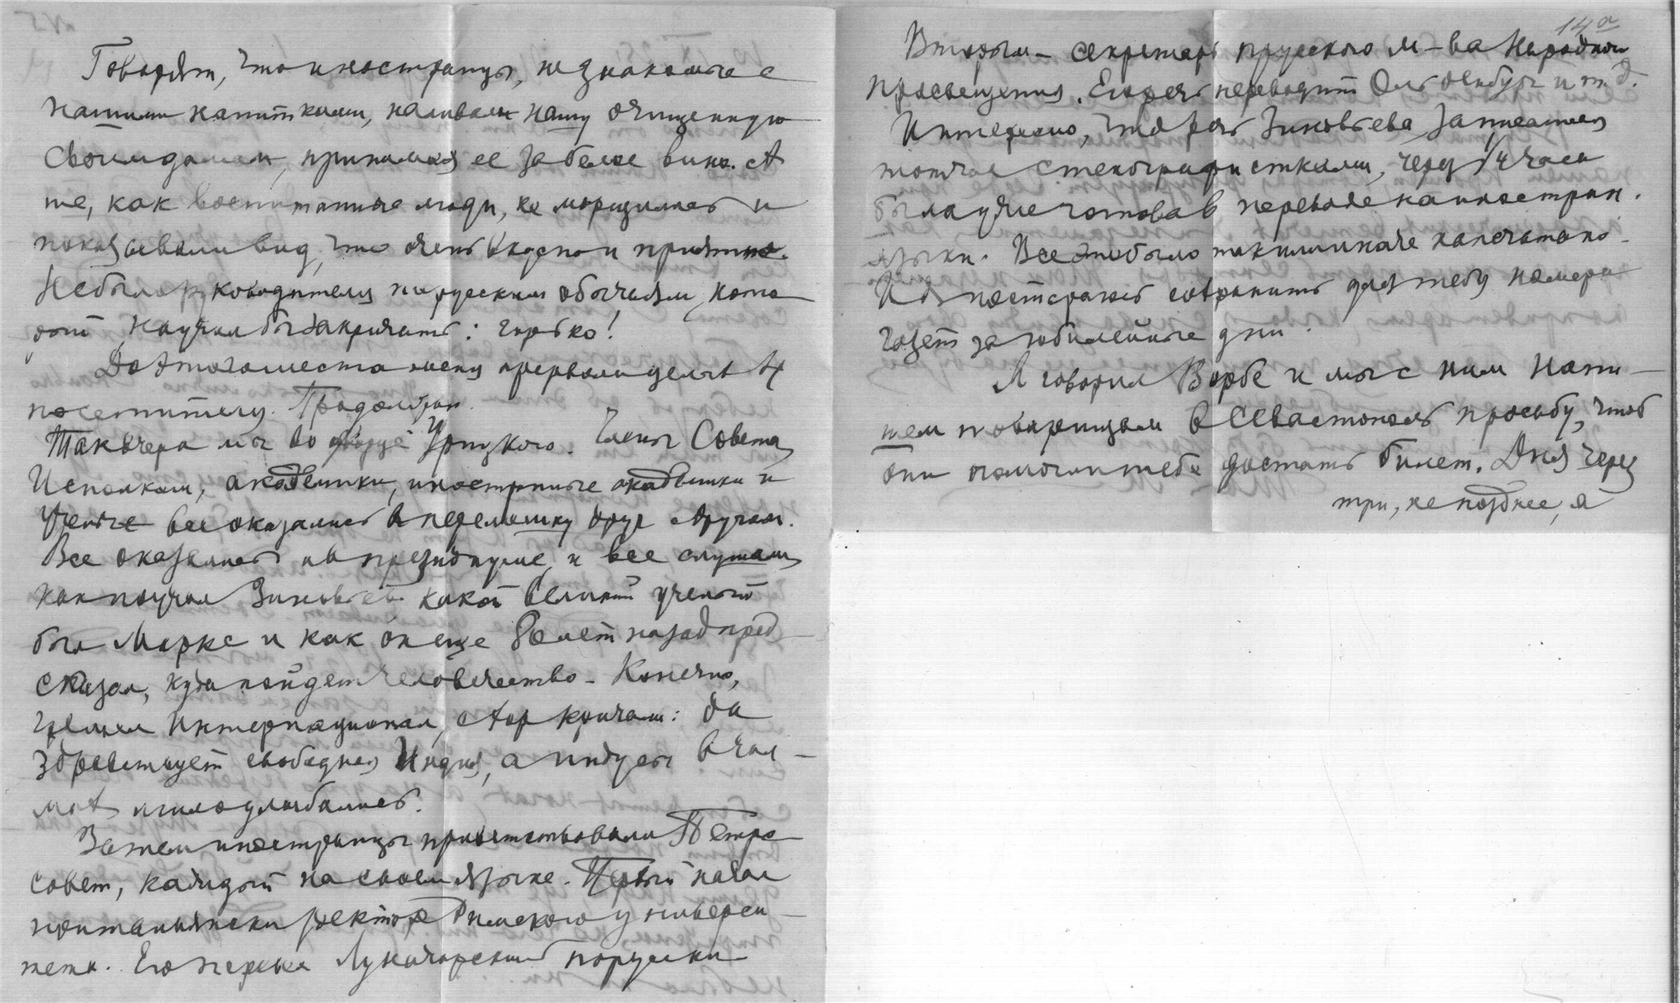 Говорят, что иностранцы, незнакомые с
нашими напитками, наливали нашу очищенную
своим дамам, принимая ее за белое вино. А
те, как воспитанные люди, не морщились и
показывали вид, что очень вкусно и приятно.
Не было руководителя по русским обычаям, кото-
рый научил бы закричать: горько!
До этого места меня прервали целых 4
посетителя. Продолжаю.
Так вчера мы во дворце Урицкого. Члены Совета,
Исполкома, академики, иностранные академики и
ученые все оказались вперемешку друг с другом.
Все оказались на президиуме, и все слушали
как поучал Зиновьев какой великий ученый
был Маркс и как он еще 80 лет назад пред-
сказал, куда пойдет человечество. Конечно,
гремел Интернационал, с хор кричали: да
здравствует свободная Индия, а индусы в чал-
мах мило улыбались.
Затем иностранцы приветствовали Петро-
совет, каждый на своем языке. Первый начал
по итальянски ректор Римского универси-
тета. Его перевел Луначарский по русски
14а
Вторым - секретарь прусского м-ва Народного
просвещения. Его речь переводит Ольденбург и т.д.
Интересно, что речь Зиновьева, записанная
тотчас стенографистками, через 1/4 часа
была уже готова в переводе на иностран.
языки. Все это было так или иначе напечатано.
И я постараюсь сохранить для тебя номера
газет за юбилейные дни.
Я говорил Ворбе и мы с ним напи-
шем товарищам в Севастополь просьбу, чтоб
они помогли тебе достать билет. Дня через
три, не позднее, я